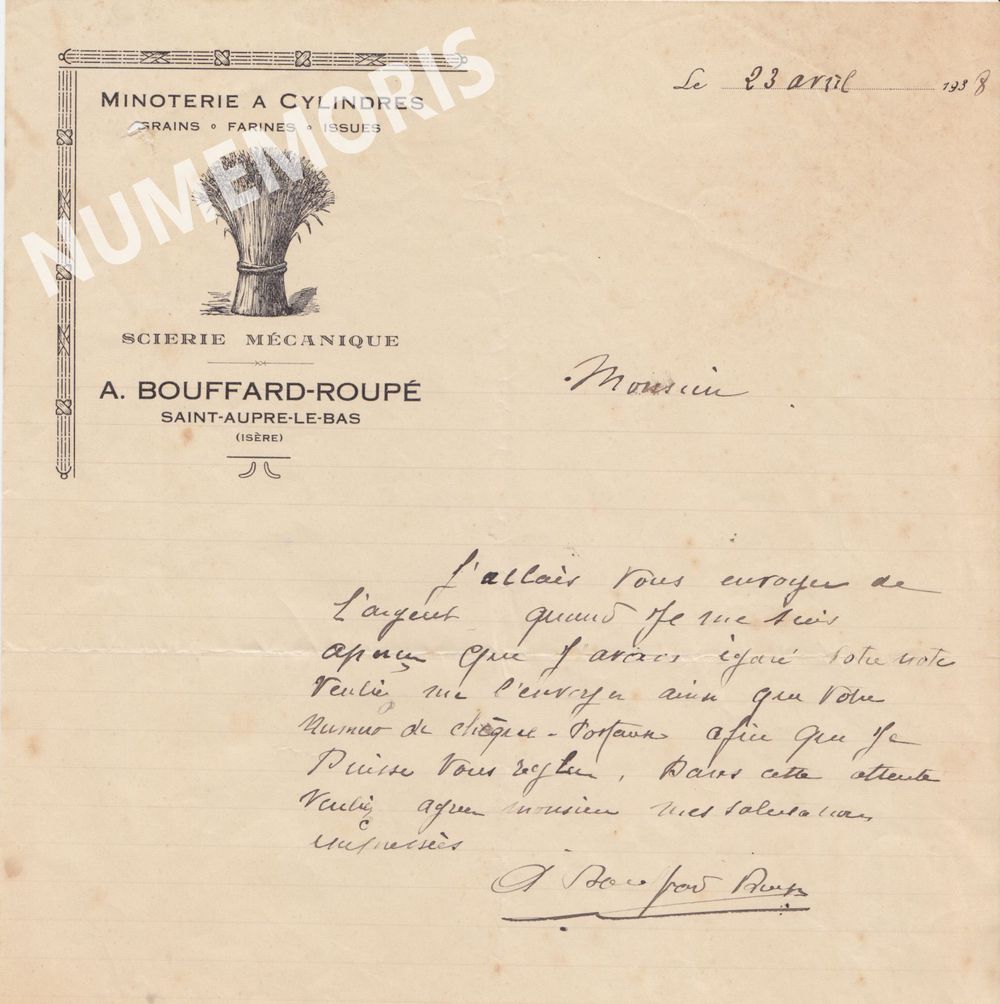 MINOTERIE A CYLINDRES
GRAINS ∘ FARINES ∘ ISSUES
NUMEMORIS
SCIERIE MÉCANIQUE
A. BOUFFARD-ROUPÉ
SAINT-AUPRE-LE-BAS
(ISÈRE)
Le 23 avril 1938
Monsieur
J'allais vous envoyer de
L'argent quand Je me suis
aperçu que J'avais égaré votre note
Veuliez me l'envoyer ainsi que votre
Numero de chèque-Postaux afin que Je
Puisse Vous regler, Dans cette attente
Veuliez agreer monsieur mes salutations
empressées
A Bouffard Roupé